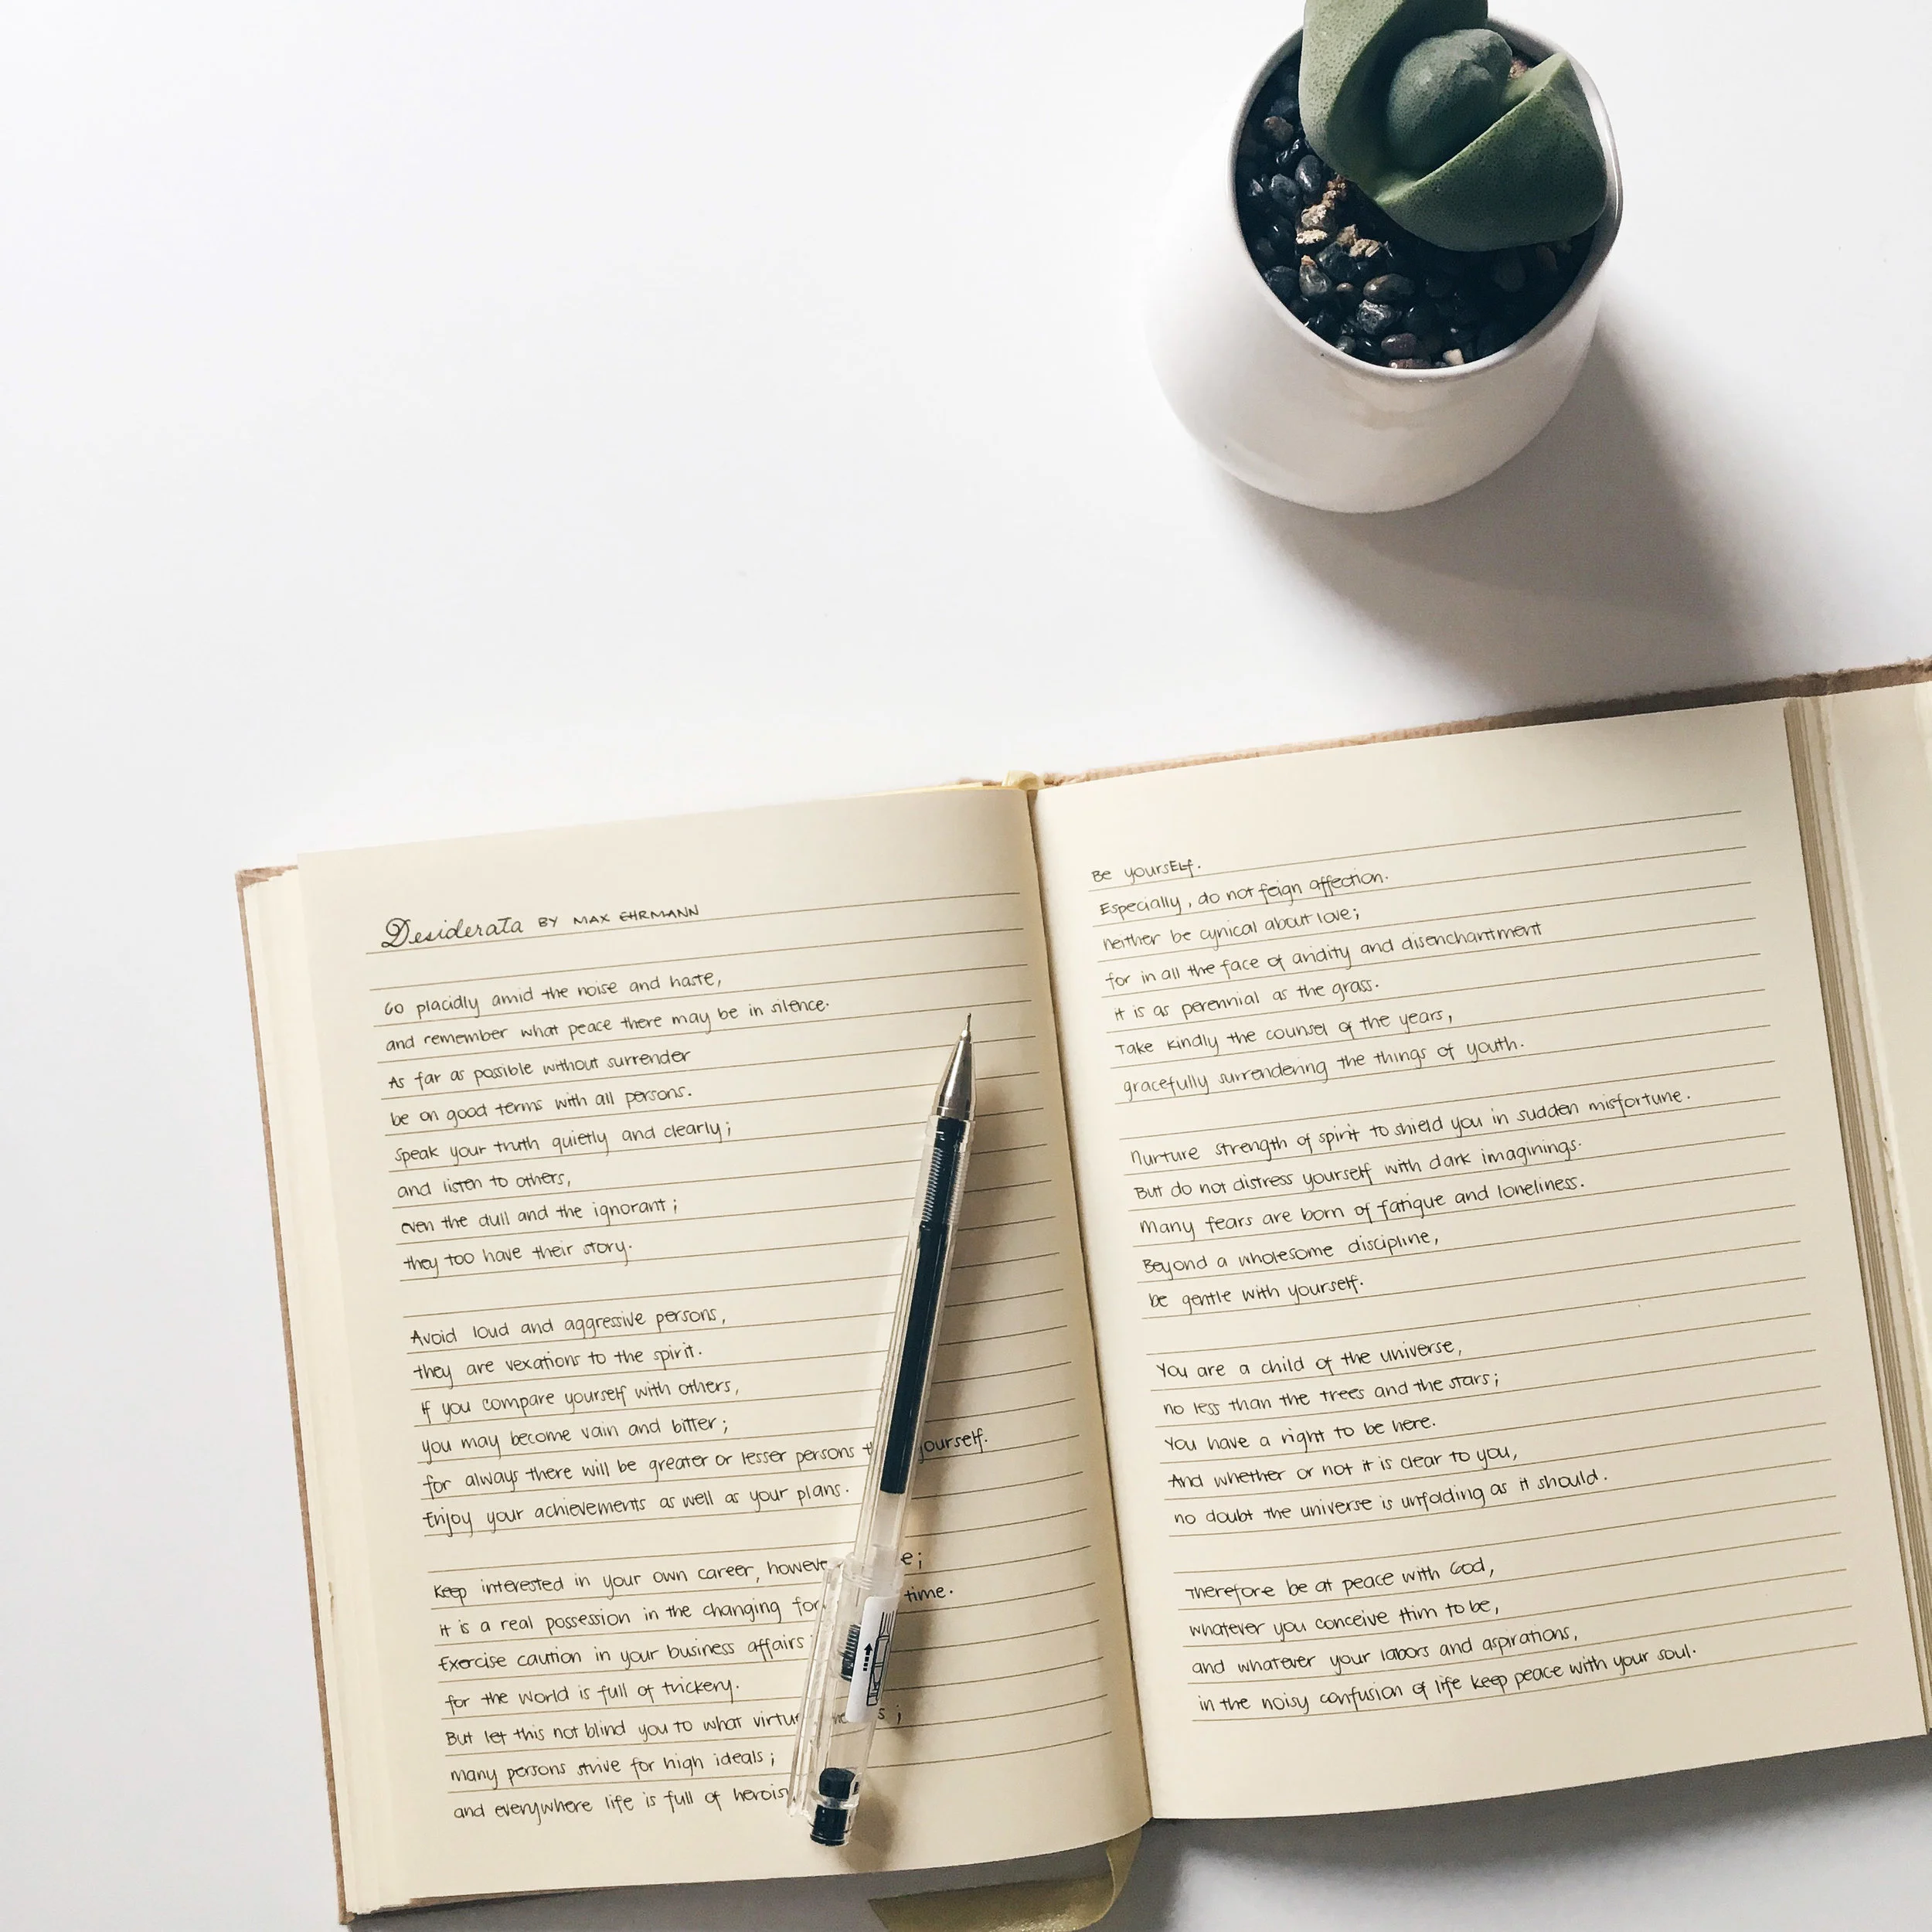 Desiderata BY MAX EHRMANN
Go placidly amid the noise and haste,
and remember what peace there may be in silence.
As far as possible without surrender
be on good terms with all persons.
Speak your truth quietly and clearly;
and listen to others,
even the dull and the ignorant;
they too have their story.
Avoid loud and aggressive persons,
they are vexations to the spirit.
If you compare yourself with others,
you may become vain and bitter;
for always there will be greater or lesser persons yourself.
Enjoy your achievements as well as your plans.
Keep interested in your own career,
it is a real possession in the changing time.
Exercise caution in your business affairs
for the world is full of trickery.
But let this not blind you to what
many persons strive for high ideals;
and everywhere life is full of
Be yoursELf.
Especially, do not feign affection.
neither be cynical about love;
for in all the face of aridity and disenchantment
it is as perennial as the grass.
Take kindly the counsel of the years,
gracefully surrendering the things of youth.
Nurture strength of spirit to shield you in sudden misfortune.
But do not distress yourself with dark imaginings.
Many fears are born of fatigue and loneliness.
Beyond a wholesome discipline,
be gentle with yourself.
You are a child of the universe,
no less than the trees and the stars;
You have a right to be here.
And whether or not it is clear to you,
no doubt the universe is unfolding as it should.
Therefore be at peace with God,
whatever you conceive Him to be,
and whatever your labors and aspirations,
in the noisy confusion of life keep peace with your soul.